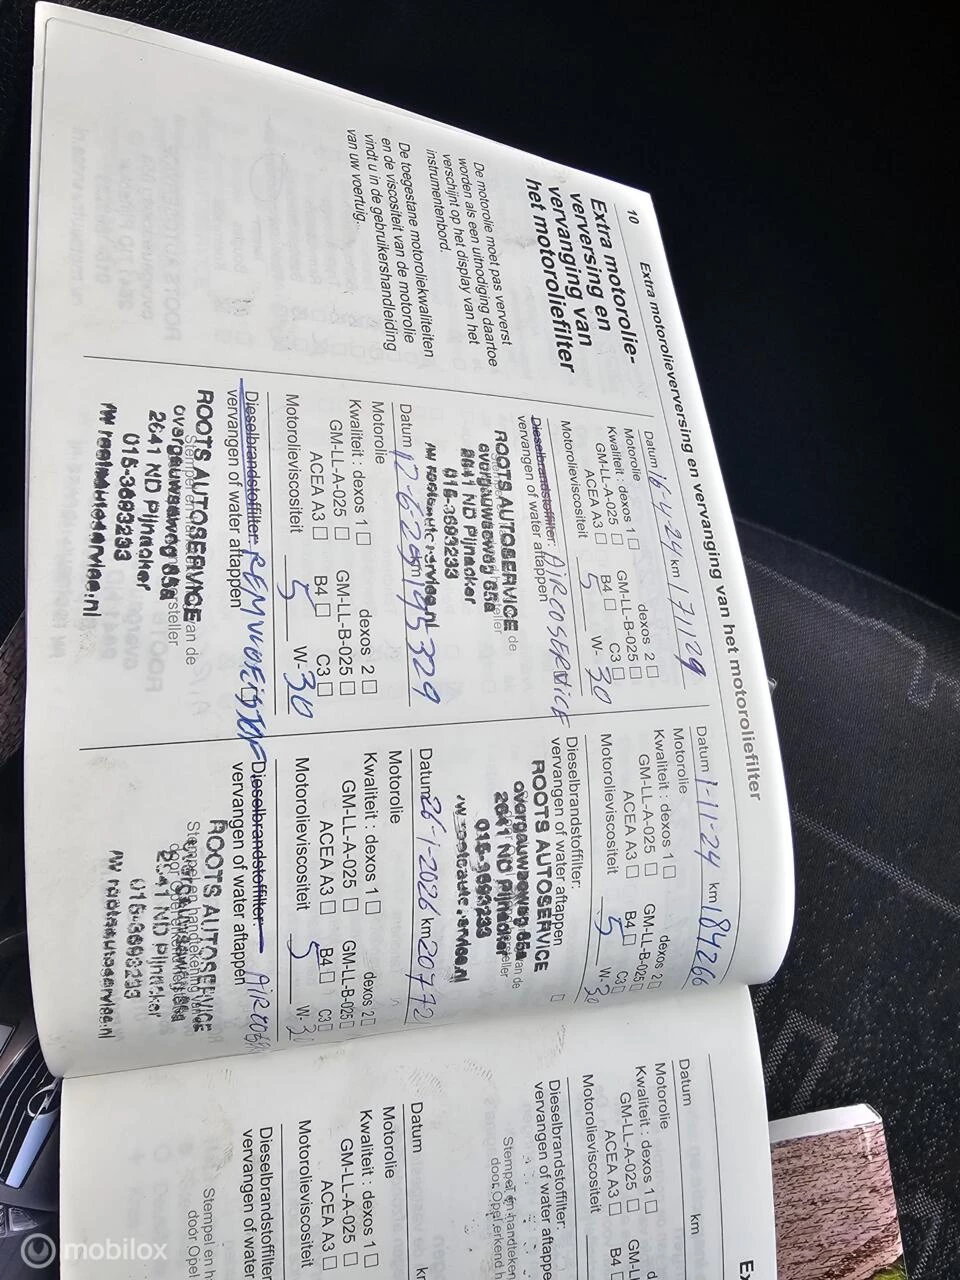 10
Extra motorolieverversing en vervanging van het motoroliefilter
Extra motorolie-
verversing en
vervanging van
het motoroliefilter
De motorolie moet pas ververst
worden als een uitnodiging daartoe
verschijnt op het display van het
instrumentenbord.
De toegestane motoroliekwaliteiten
en de viscositeit van de motorolie
vindt u in de gebruikershandleiding
van uw voertuig.
Datum 16-4-24 km 171129
Motorolie
Kwaliteit : dexos 1 dexos 2
GM-LL-A-025 GM-LL-B-025
ACEA A3 B4 C3
Motorolieviscositeit 5 W- 30
Dieselbrandstoffilter: AIRCOSERVICE
vervangen of water aftappen
ROOTS AUTOSERVICE
overgauwseweg 65a
2641 ND Pijnacker
015-3693233
Datum 12-6-25 km 195329
Motorolie
Kwaliteit : dexos 1 dexos 2
GM-LL-A-025 GM-LL-B-025
ACEA A3 B4 C3
Motorolieviscositeit 5 W- 30
Dieselbrandstoffilter: REMVLOEISTOF
vervangen of water aftappen
ROOTS AUTOSERVICE
overgauwseweg 65a
2641 ND Pijnacker
015-3693233
Datum 1-11-24 km 184266
Motorolie
Kwaliteit : dexos 1 dexos 2
GM-LL-A-025 GM-LL-B-025
ACEA A3 B4 C3
Motorolieviscositeit 5 W- 30
Dieselbrandstoffilter:
vervangen of water aftappen
ROOTS AUTOSERVICE
overgauwseweg 65a
2641 ND Pijnacker
015-3693233
Datum 26-1-2026 km 20772
Motorolie
Kwaliteit : dexos 1 dexos 2
GM-LL-A-025 GM-LL-B-025
ACEA A3 B4 C3
Motorolieviscositeit 5 W- 30
Dieselbrandstoffilter:
vervangen of water aftappen
ROOTS AUTOSERVICE
2641 ND Pijnacker
015-3693233
Datum km
Motorolie
Kwaliteit : dexos 1
GM-LL-A-025
ACEA A3 B4
Motorolieviscositeit
Dieselbrandstoffilter:
vervangen of water aftappen
Stempel en handteken
door Opel erkend h
Datum
Motorolie
Kwaliteit : dexos 1
GM-LL-A-025
ACEA A3
Motorolieviscositeit
Dieselbrandstoffilter
vervangen of water
Stempel en h
door Opel
mobilox